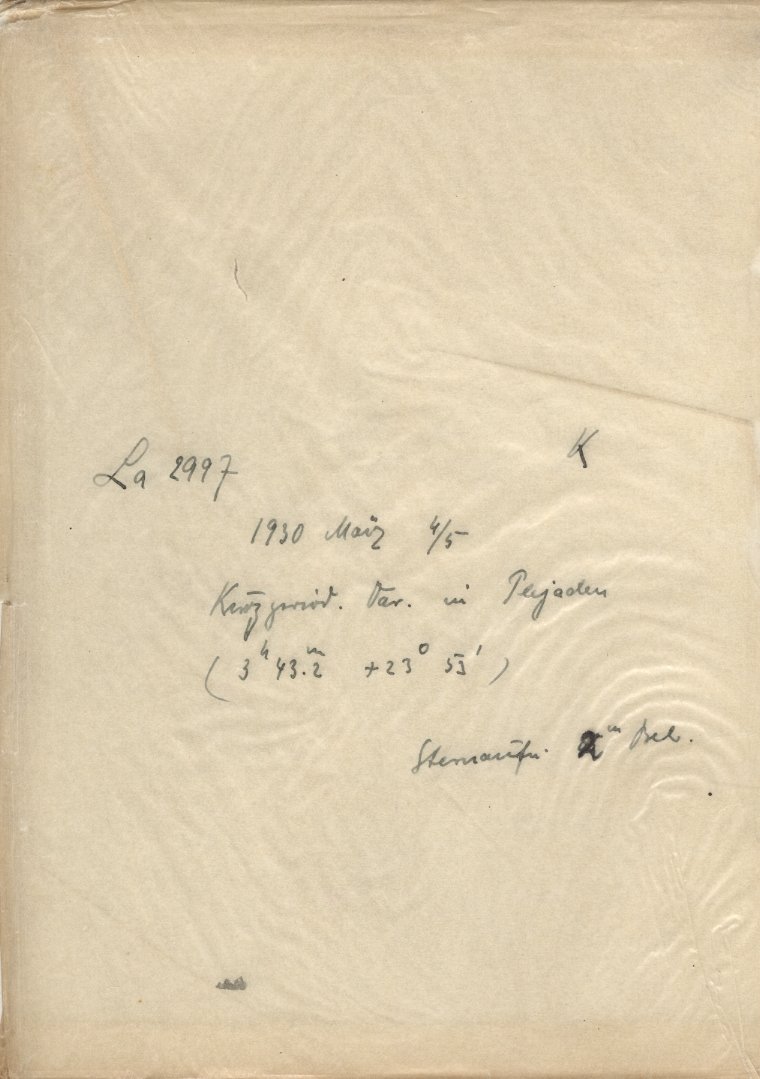 La 2997 K
1930 März 4/5
Kurzperiod. Var. in Plejaden
(3ʰ 43.ᵐ2 +23° 53′)
Sternaufn. 2ᵐ Bel.